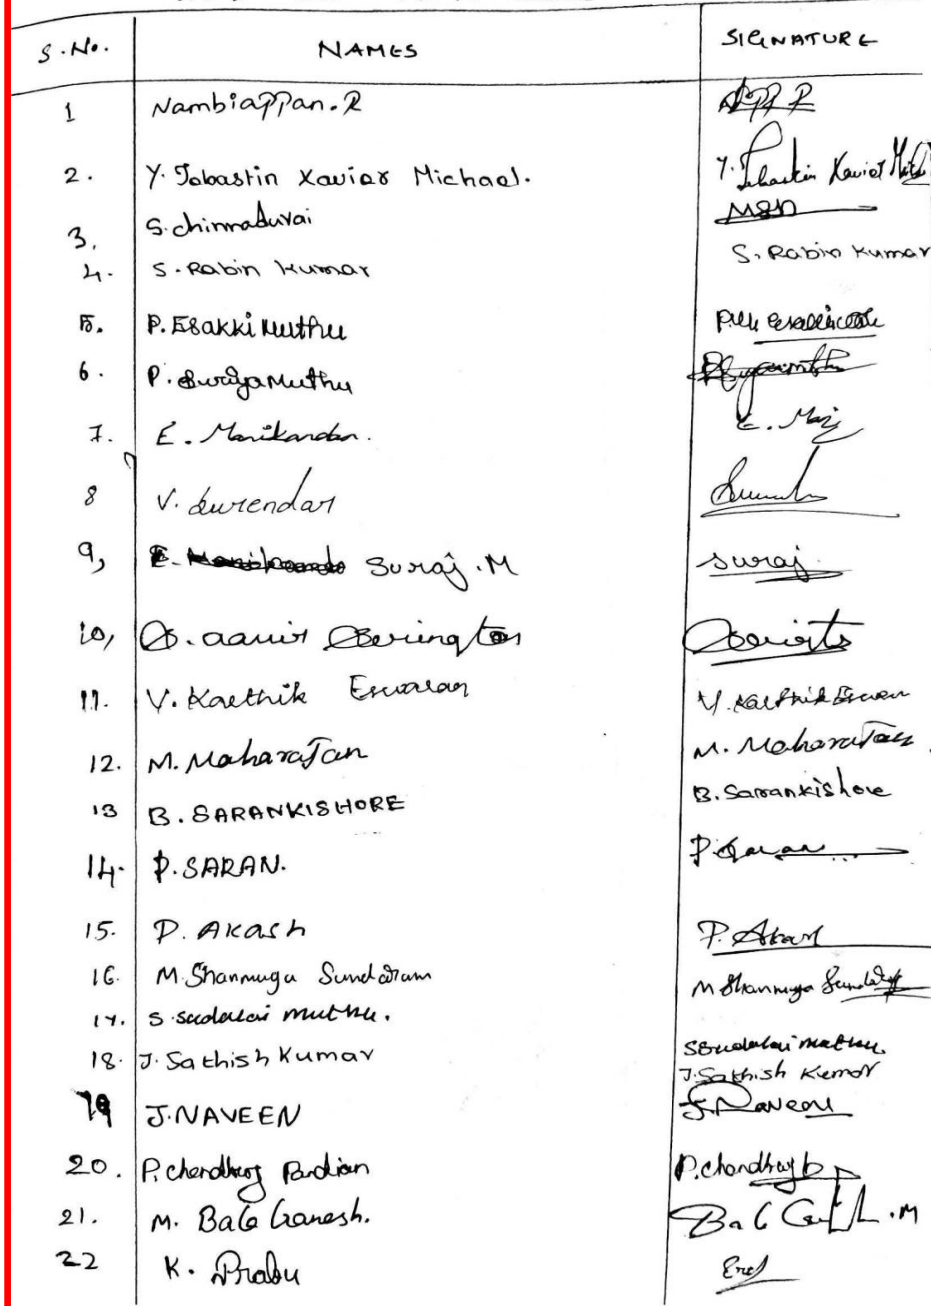 S.No. NAMES SIGNATURE
1 Nambiappan.R
2. Y. Jobastin Xavier Michael. Y. Jobastin Xavier
3. S. chinnadurai
4. S. Rabin Kumar S. Rabin Kumar
5. P. Esakki Muthu
6. P. SuryaMuthu
7. E. Manikandan. E. Mani
8 V. Surendar
9, Suraj.M suraj
10,
11. V. Karthik Eswaran V. Karthik
12. M. Maharajan M. Maharajan
13 B. SARANKISHORE B. Sarankishore
14. P. SARAN. P. Saran
15. P. Akash P. Akash
16. M. Shanmuga Sundaram M Shanmuga
17. S. sudalai muthu. S sudalai muthu.
18. J. Sathish Kumar J. Sathish Kumar
19 J. NAVEEN J. Naveen
20. P. chandhraj Pandian P. chandhraj
21. M. Bala Ganesh.
22 K. Prabu